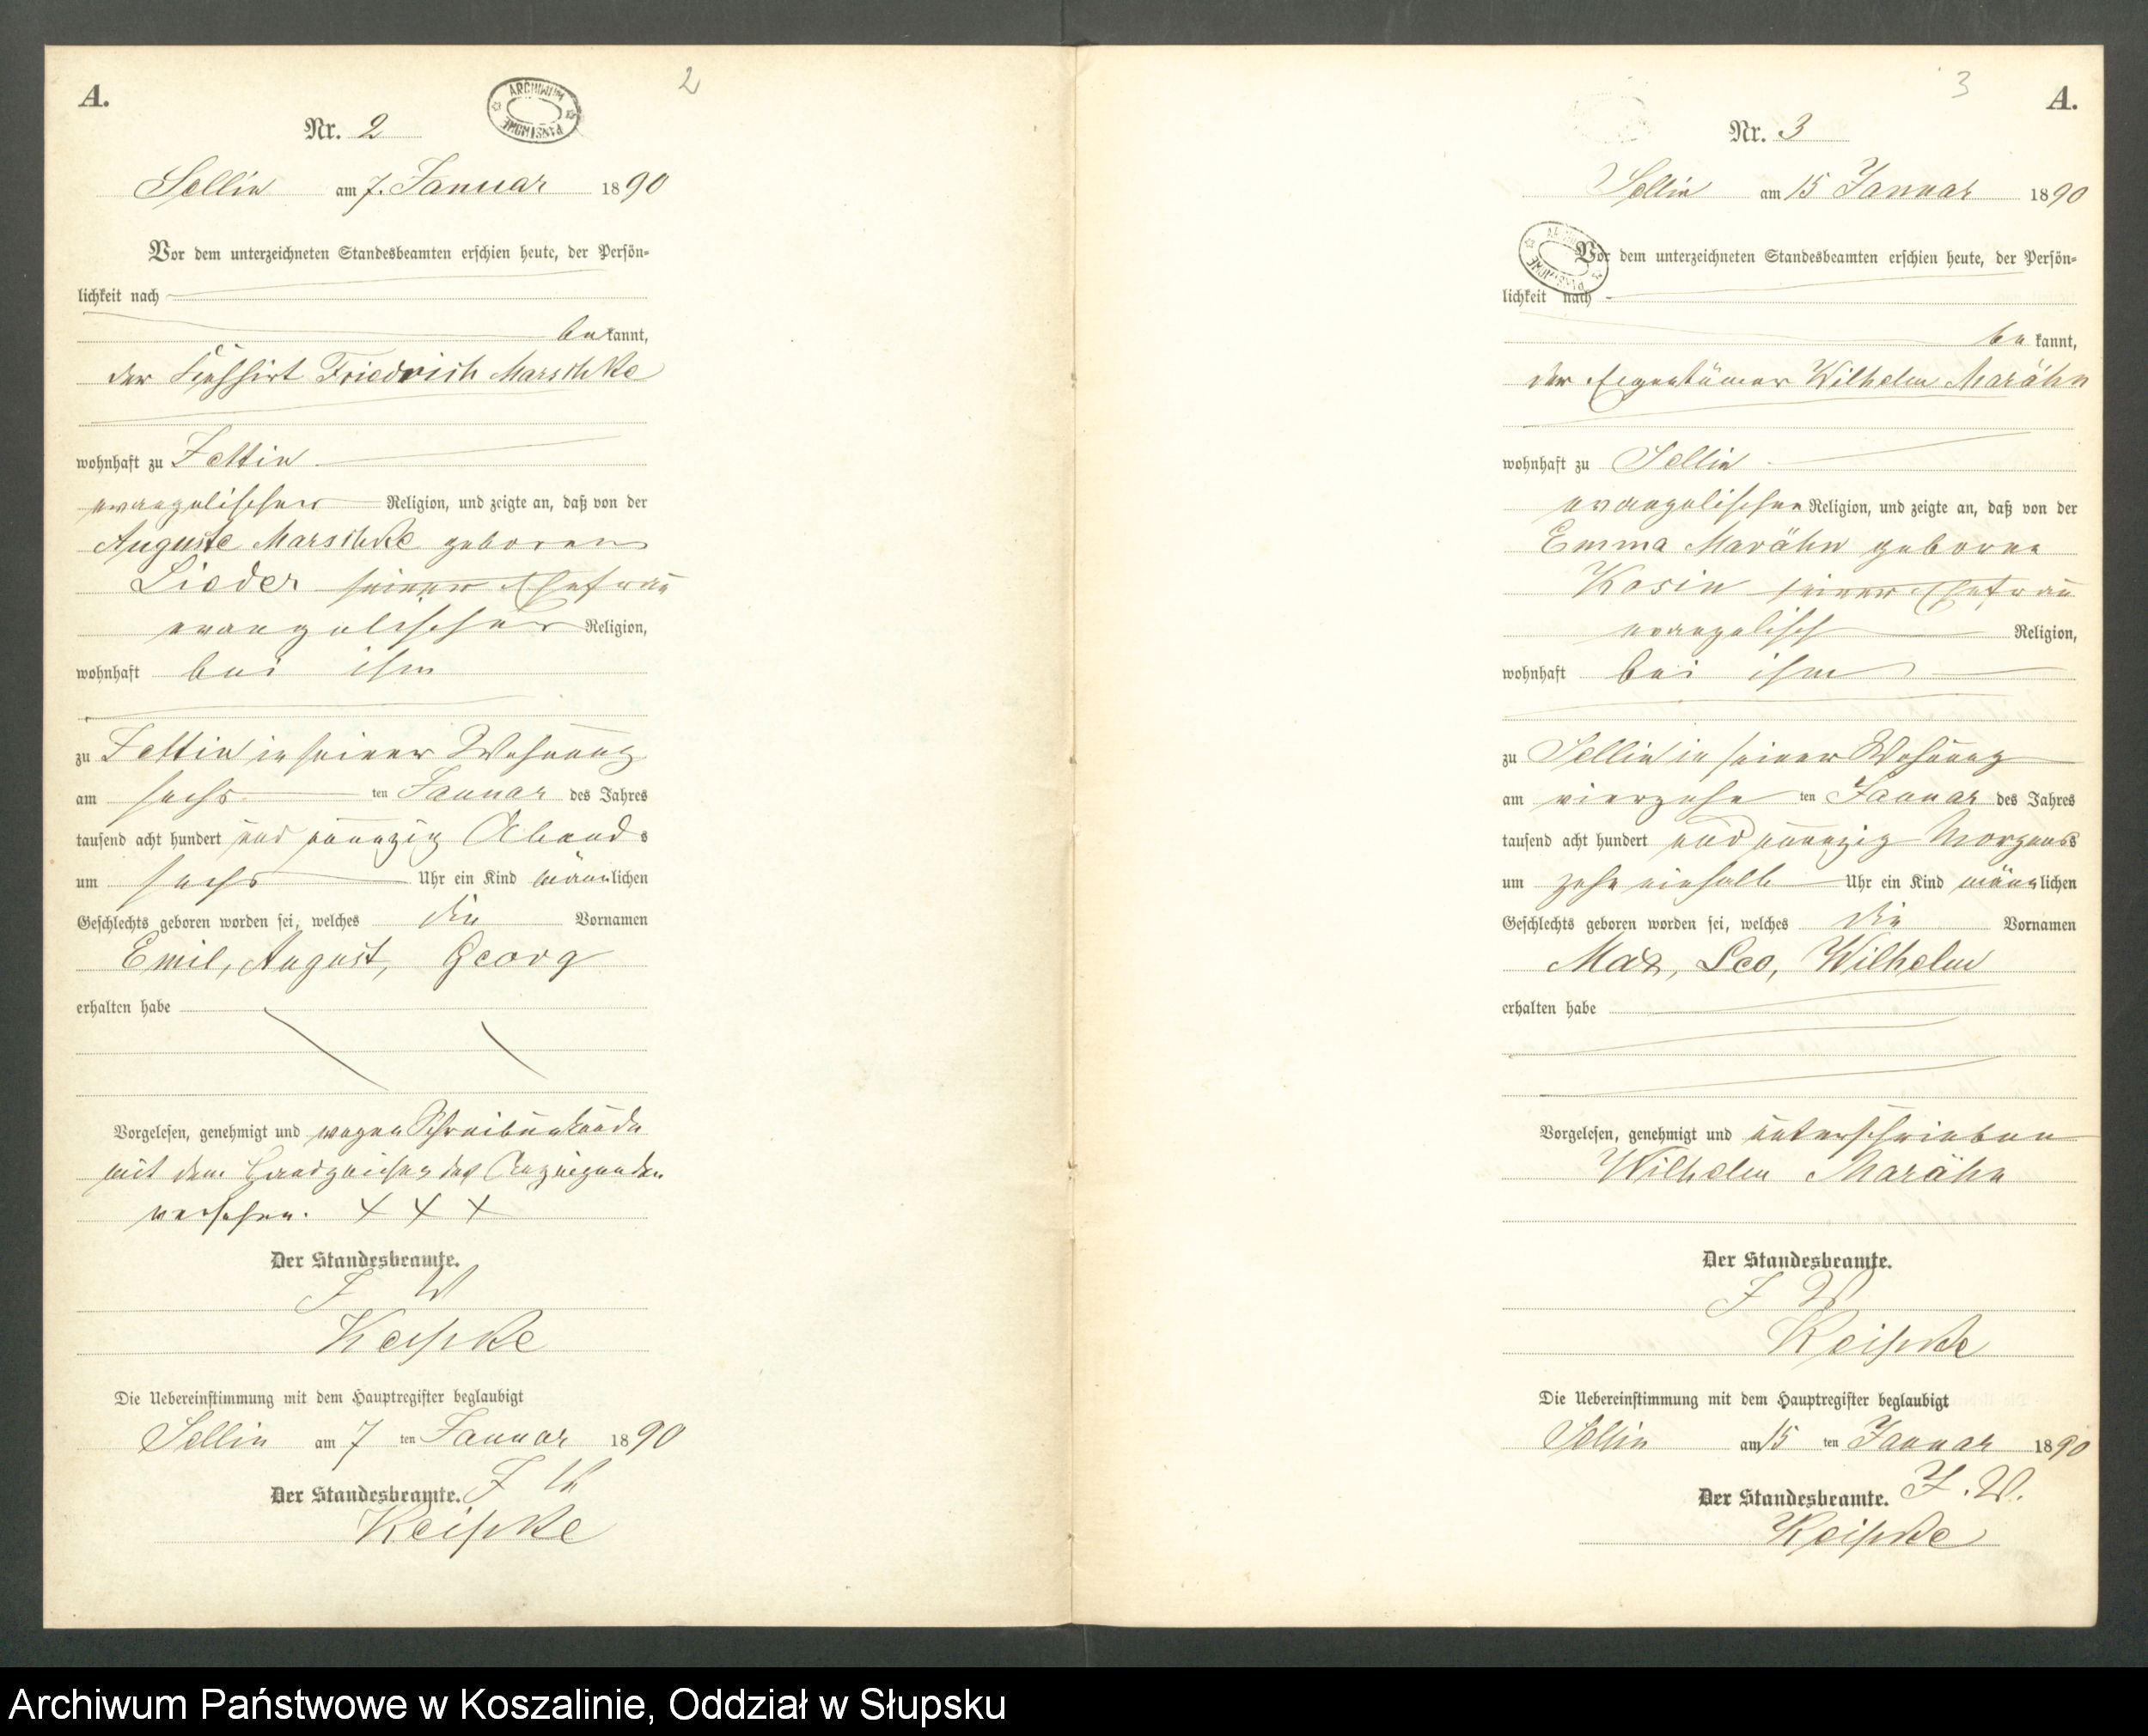 A.
2
ARCHIWUM PAŃSTWOWE
Nr. 2
Sellin am 7. Januar 1890
Vor dem unterzeichneten Standesbeamten erschien heute, der Persön-
lichkeit nach
bekannt,
der Friedrich Marschke
wohnhaft zu Zettin
evangelischer Religion, und zeigte an, daß von der
Auguste Marschke geborenen
Lieder seiner Ehefrau
evangelischer Religion,
wohnhaft bei ihm
zu Zettin in seiner Wohnung
am sechs ten Januar des Jahres
tausend acht hundert und neunzig Abends
um sechs Uhr ein Kind männlichen
Geschlechts geboren worden sei, welches die Vornamen
Emil, August, Georg
erhalten habe
Vorgelesen, genehmigt und wegen Schreibunkunde
mit dem Handzeichen des Anzeigenden
versehen. + + +
Der Standesbeamte.
J V
Keipke
Die Uebereinstimmung mit dem Hauptregister beglaubigt
Sellin am 7 ten Januar 1890
Der Standesbeamte. J V
Keipke
3
A.
Nr. 3
Sellin am 15 Januar 1890
ARCHIWUM PAŃSTWOWE
Vor dem unterzeichneten Standesbeamten erschien heute, der Persön-
lichkeit nach
bekannt,
der Eigentümer Wilhelm Marähn
wohnhaft zu Sellin
evangelischen Religion, und zeigte an, daß von der
Emma Marähn geborne
Kosin seiner Ehefrau
evangelisch Religion,
wohnhaft bei ihm
zu Sellin in seiner Wohnung
am vierzehn ten Januar des Jahres
tausend acht hundert und neunzig Morgens
um zehn einhalb Uhr ein Kind männlichen
Geschlechts geboren worden sei, welches die Vornamen
Max, Leo, Wilhelm
erhalten habe
Vorgelesen, genehmigt und unterschrieben
Wilhelm Marähn
Der Standesbeamte.
J V
Keipke
Die Uebereinstimmung mit dem Hauptregister beglaubigt
Sellin am 15 ten Januar 1890
Der Standesbeamte. J. V.
Keipke
Archiwum Państwowe w Koszalinie, Oddział w Słupsku